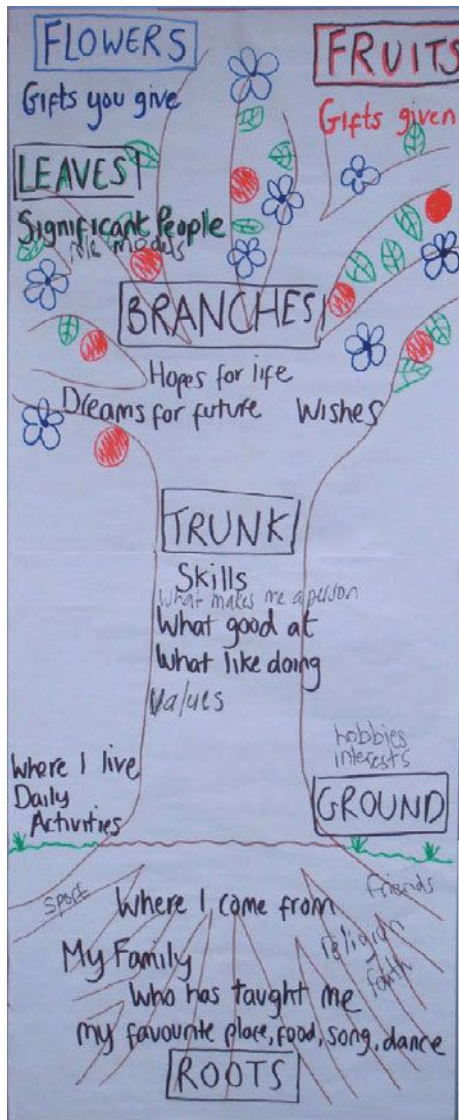 FLOWERS
Gifts you give
FRUITS
Gifts given
LEAVES
Significant People
role models
BRANCHES
Hopes for life
Dreams for future Wishes
TRUNK
Skills
What makes me a person
What good at
What like doing
Values
Where I live
Daily
Activities
hobbies
interests
GROUND
sport
friends
Where I come from
religion
faith
My Family
Who has taught me
my favourite place, food, song, dance
ROOTS